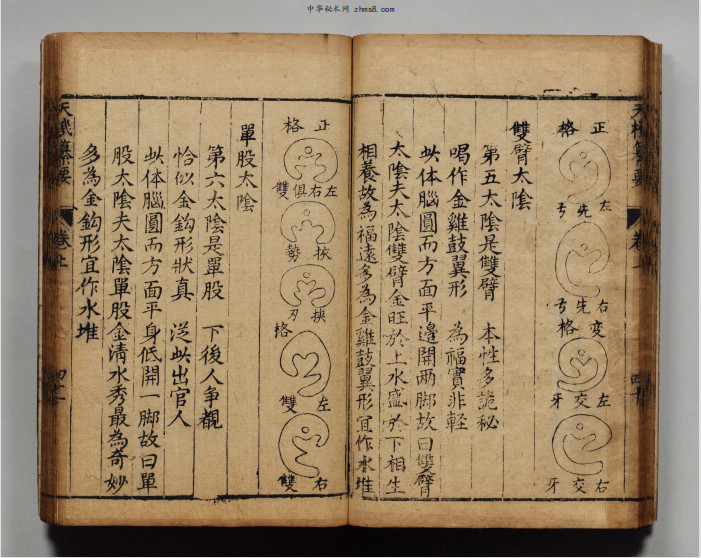 中华秘术网 zhms8.com
天機纂要
卷上
正格
左先弓
右先弓
变格
左交牙
右交牙
雙臂太陰
第五太陰是雙臂 本性多詭秘
唱作金雞鼓翼形 為福實非輕
此体腦圓而方面平邊開两脚故曰雙臂
太陰夫太陰雙臂金旺於上水盛於下相生
相養故為福遠多為金雞鼓翼形宜作水堆
正格
左右俱雙
挾勢
挾刃
格
左雙
右雙
單股太陰
第六太陰是單股 下後人争觀
恰似金鈎形狀真 泛此出官人
此体腦圓而方面平身低開一脚故曰單
股太陰夫太陰單股金清水秀最為奇妙
多為金鈎形宜作水堆
天機纂要
卷上